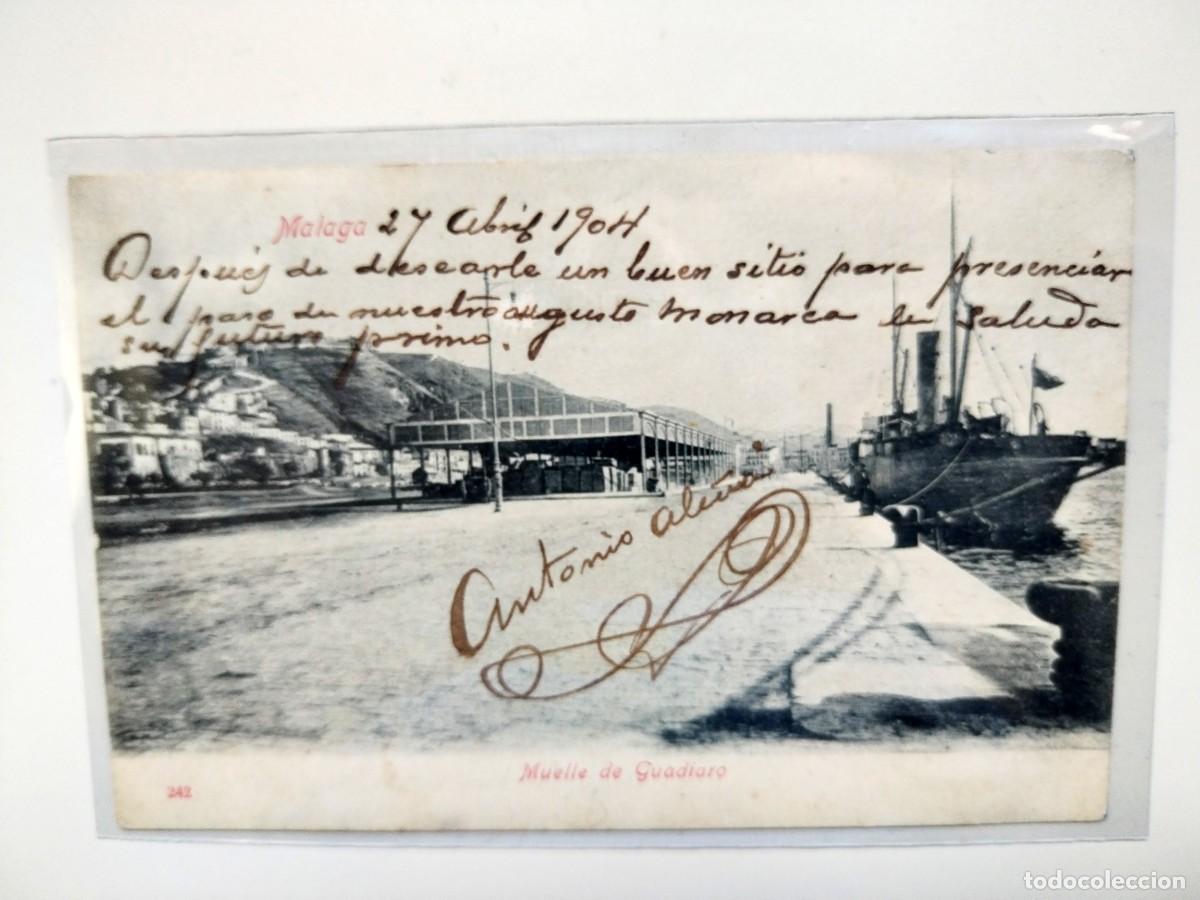 Malaga 27 Abril 1904
Después de desearle un buen sitio para presenciar
el paso de nuestro augusto monarca le saluda
su futuro primo.
Antonio
Muelle de Guadiaro
242
todocoleccion